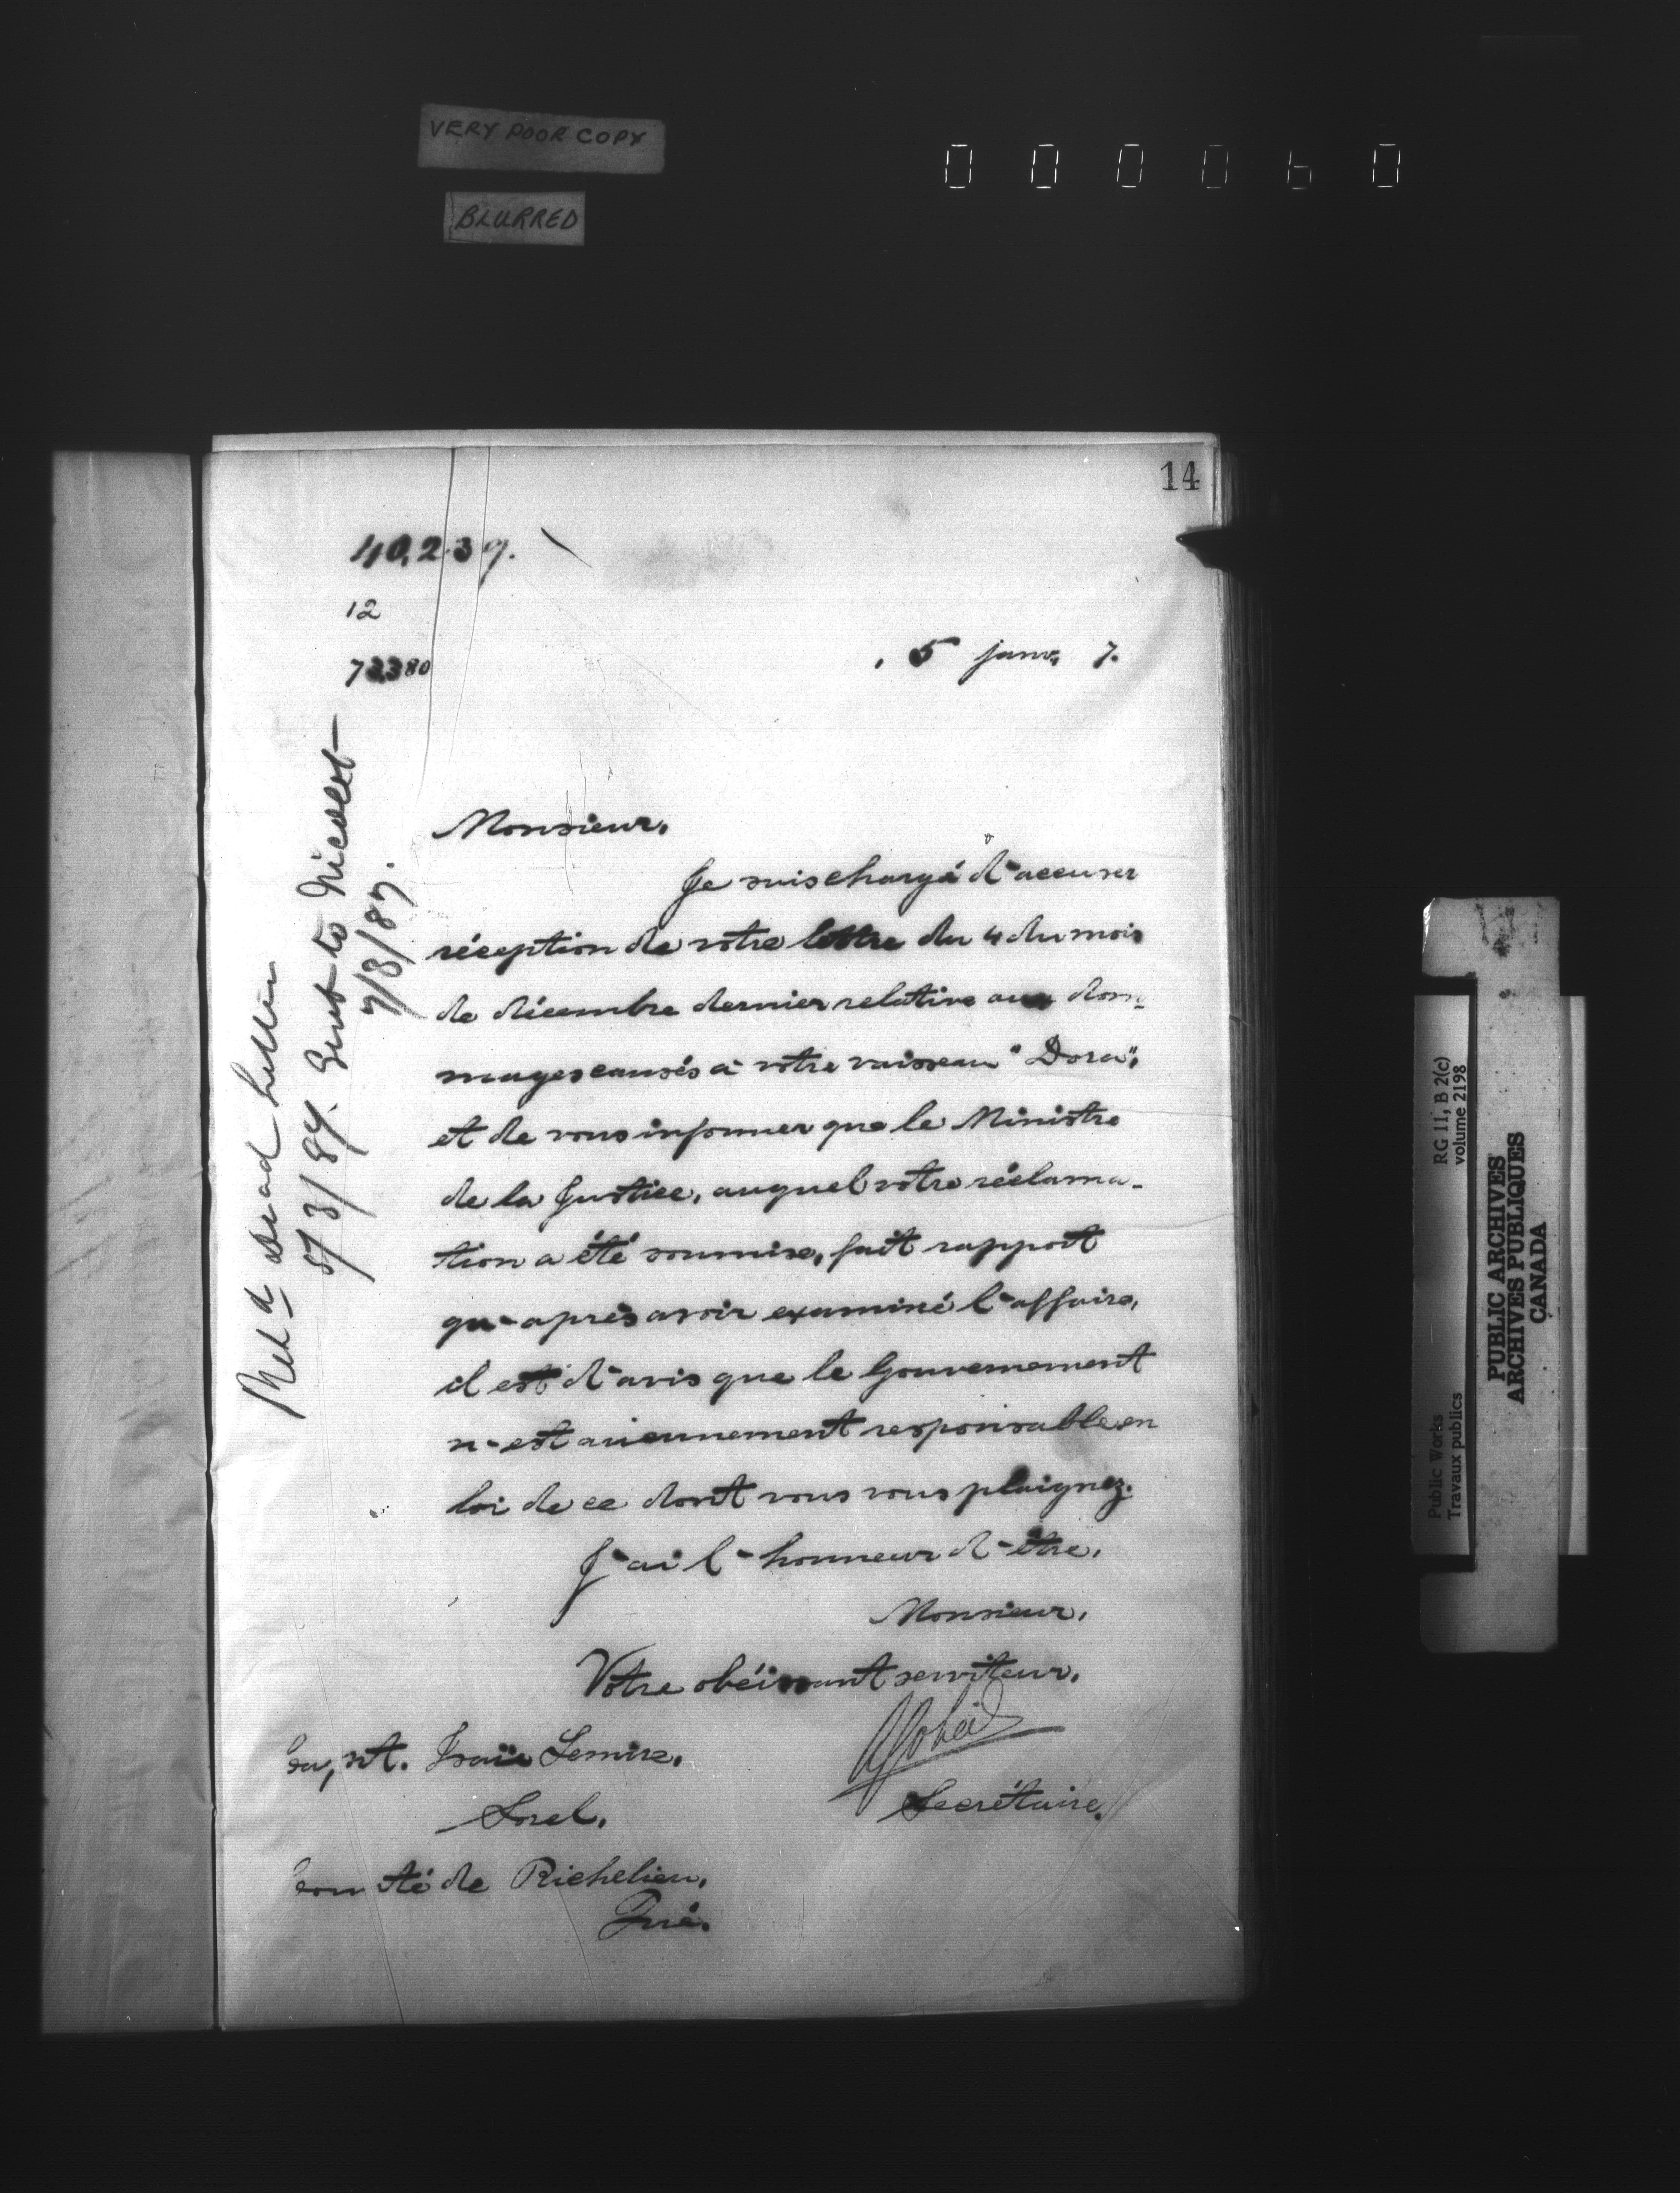 VERY POOR COPY
BLURRED
000060
14
40,239.
12
73380
5 janv. 7.
Monsieur,
Je suis chargé d'accuser
réception de votre lettre du 4 du mois
de décembre dernier relative aux dom-
mages causés à votre vaisseau "Dora",
et de vous informer que le Ministre
de la Justice, auquel votre réclama-
tion a été soumise, fait rapport
qu'après avoir examiné l'affaire,
il est d'avis que le Gouvernement
n'est aucunement responsable en
loi de ce dont vous vous plaignez.
J'ai l'honneur d'être,
Monsieur,
Votre obéissant serviteur,
Secrétaire.
Capt. Isaïe Lemire,
Sorel,
Comté de Richelieu,
Qué.
Ret'd dead letter
Sent to Nicolet
7/3/87.
Public Works RG 11, B 2(c)
Travaux publics volume 2198
PUBLIC ARCHIVES
ARCHIVES PUBLIQUES
CANADA